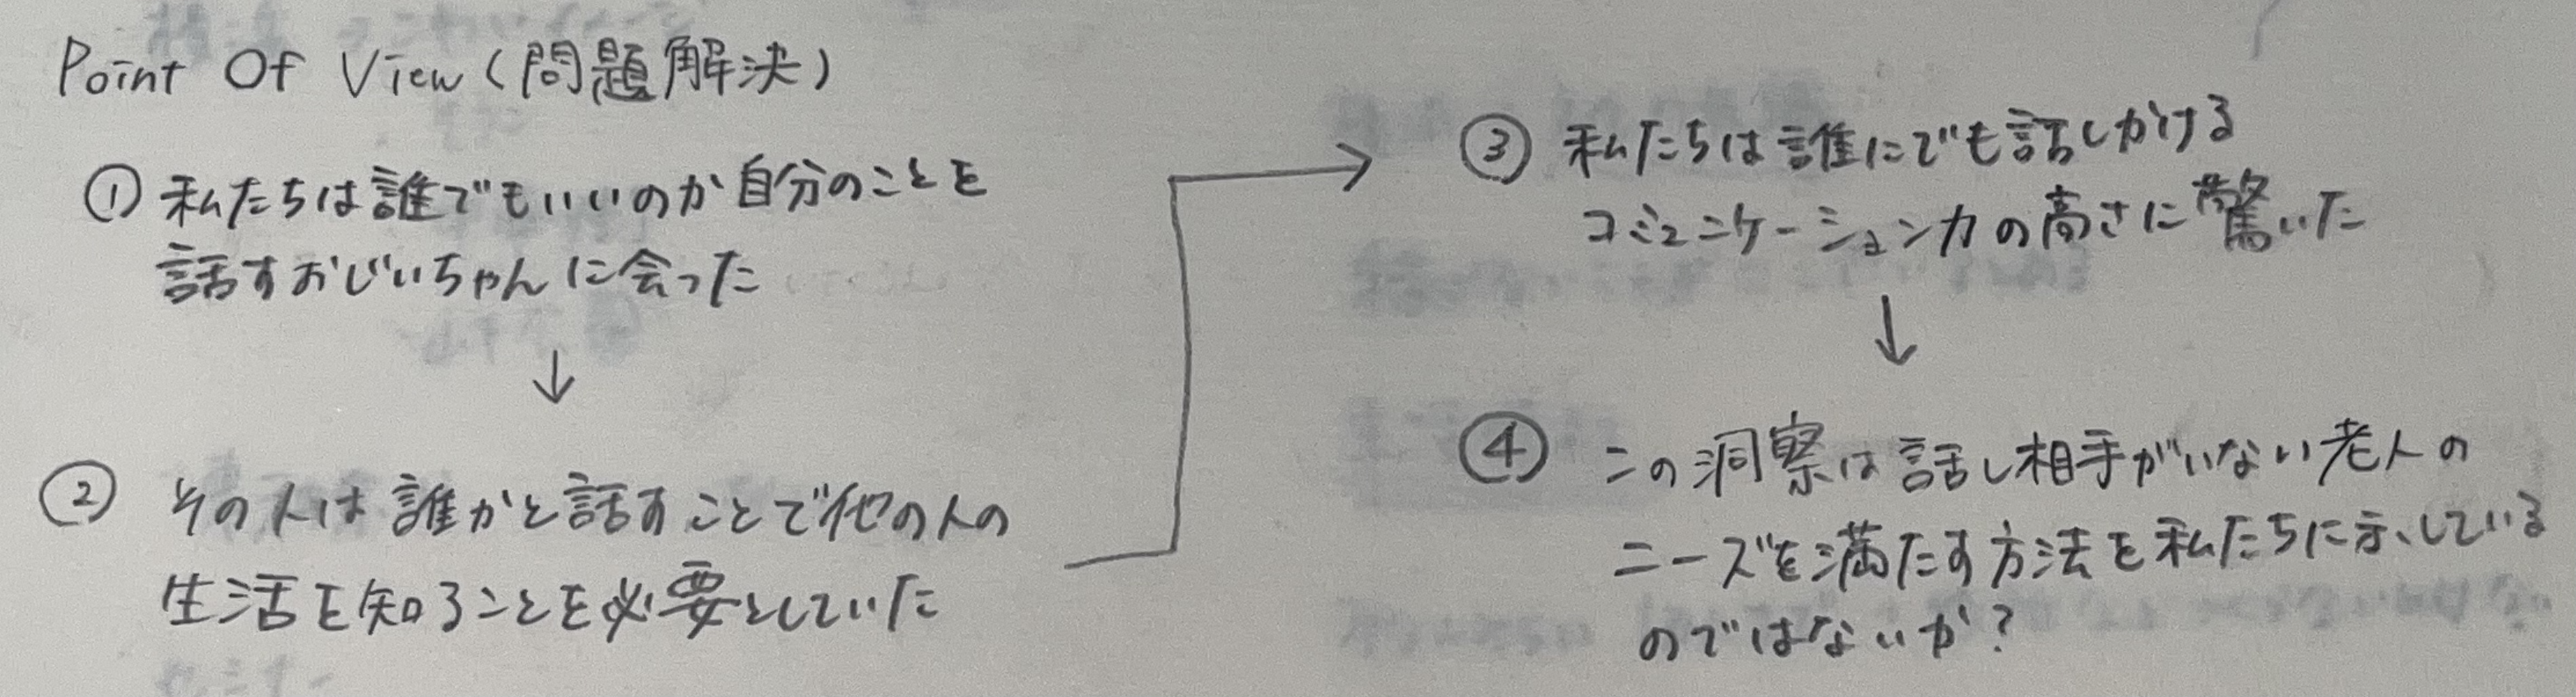 Point Of View (問題解決)
① 私たちは誰でもいいのか自分のことを
話すおじいちゃんに会った
↓
② その人は誰かと話すことで他の人の
生活を知ることを必要としていた
③ 私たちは誰にでも話しかける
コミュニケーション力の高さに驚いた
↓
④ この洞察は話し相手がいない老人の
ニーズを満たす方法を私たちに示している
のではないか?